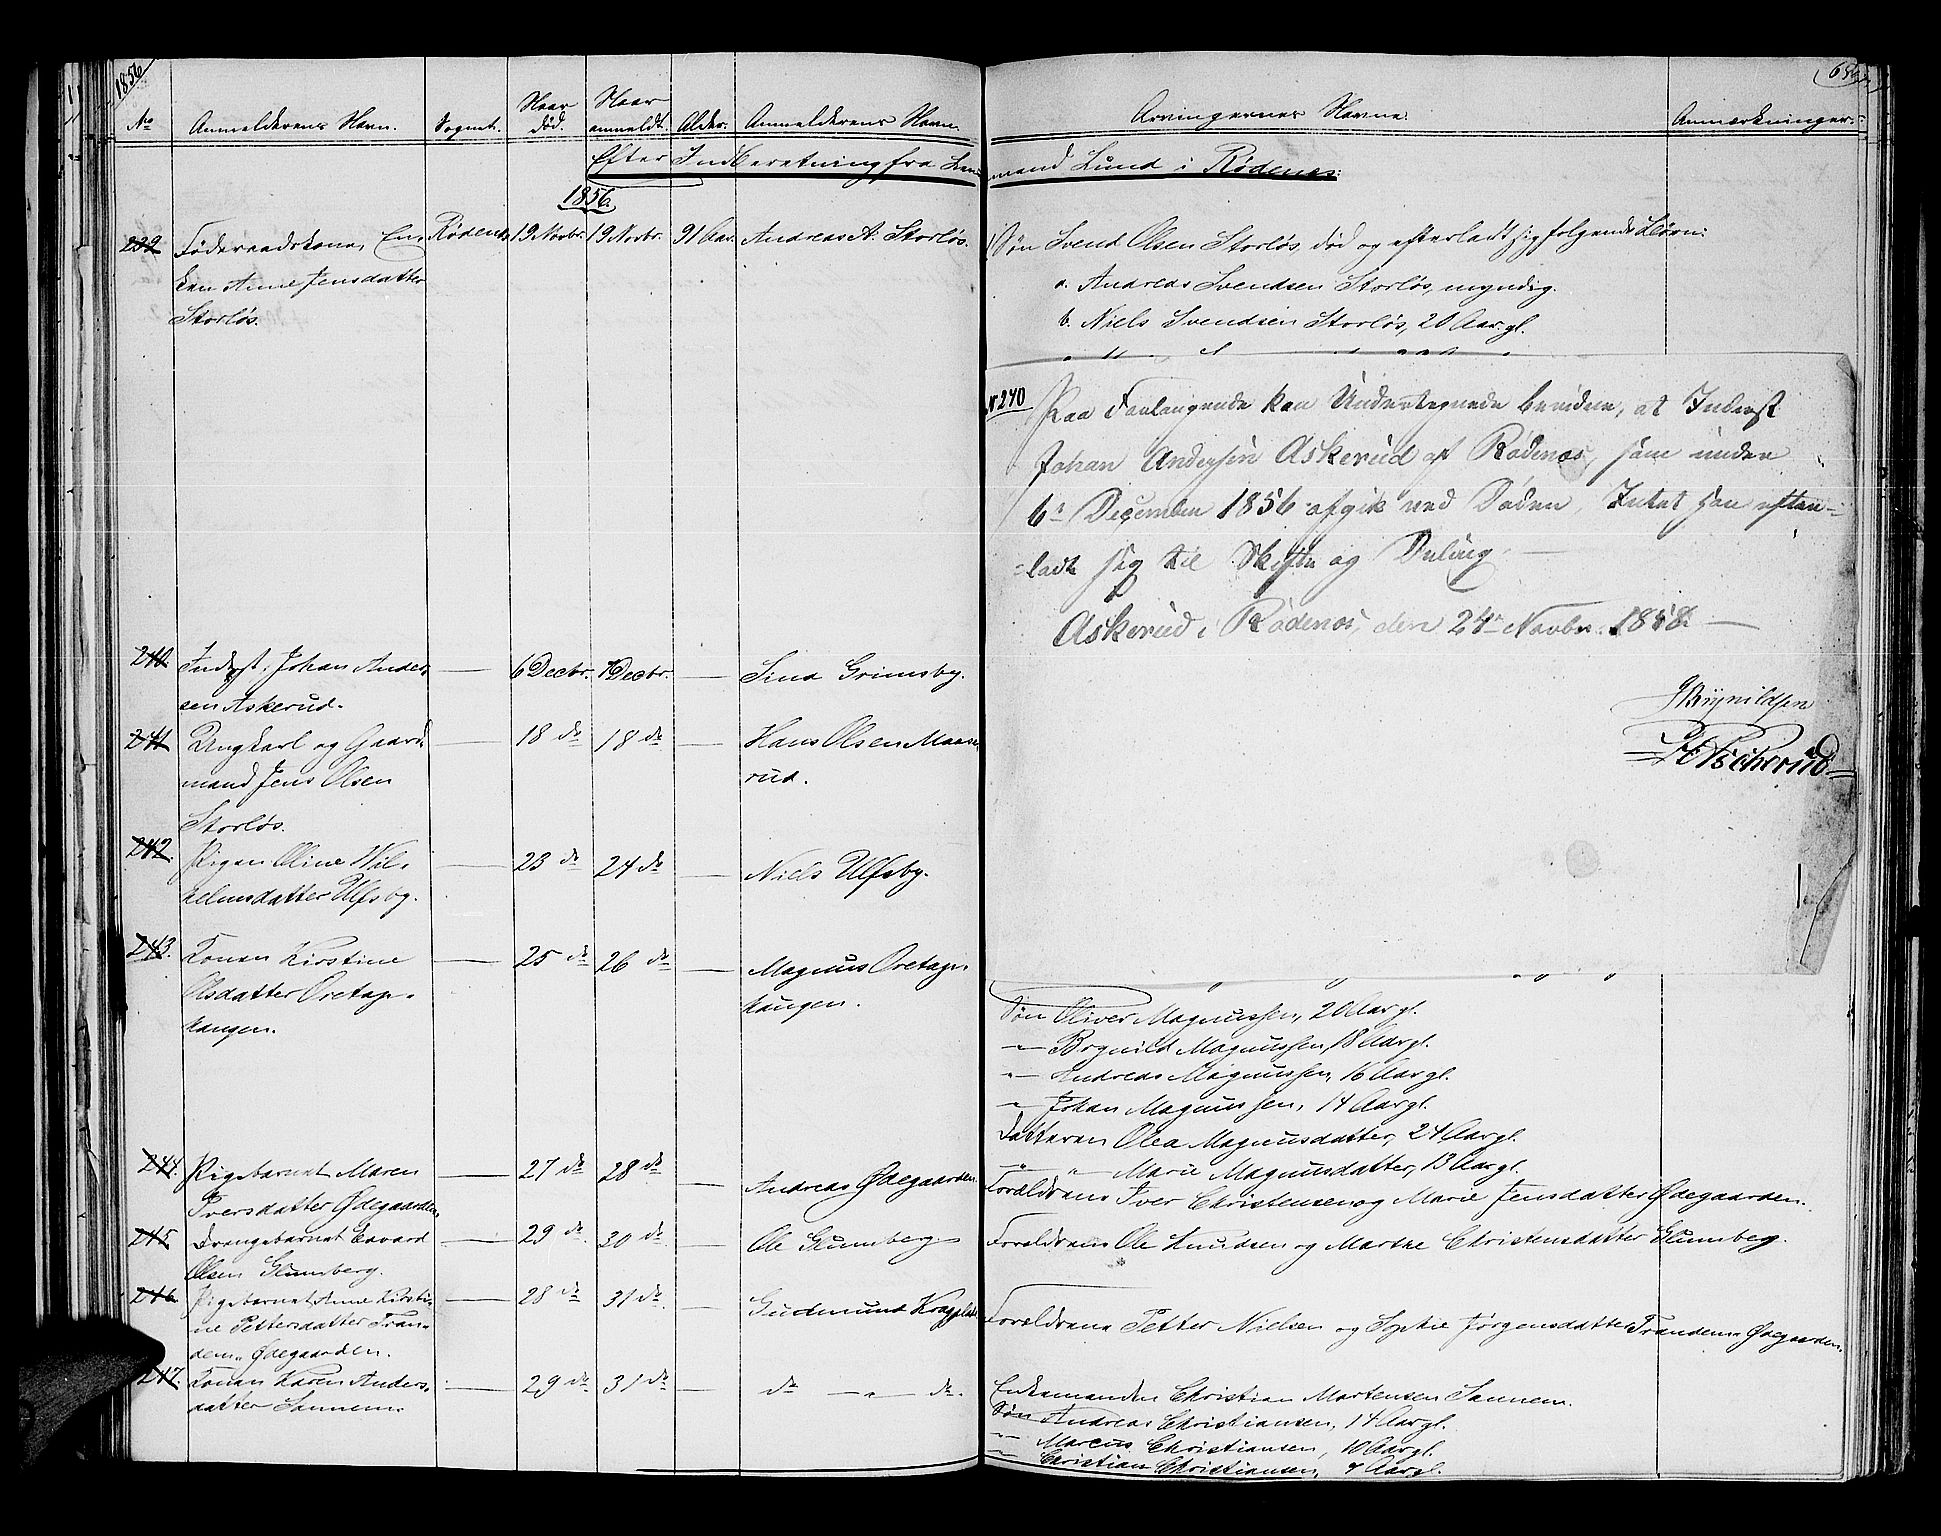 1856
No
Anmelderens Navn.
Sognet.
Naar død.
Naar anmeldt.
Alder.
Anmelderens Navn.
Arvingernes Navne.
Anmærkninger.
Efter Indberetning fra Lensmand Lund i Rødenes:
1856.
239
Føderaadskone, En-
ken Anne Jensdatter
Storløs.
Rødenes
19 Novbr.
19 Novbr.
91 Aar.
Andreas A. Storløs.
1/ Søn Svend Olsen Storløs, død og efterladt sig følgende Børn:
a. Andreas Svendsen Storløs, myndig.
b. Niels Svendsen Storløs, 20 Aar gl.
N 240
Paa Forlangende kan Undertegnede bevidne, at Inderst
Johan Andersen Askerud af Rødenæs, som under
6te December 1856 afgik ved Døden, Intet har efter-
-ladt sig til Skifte og Deling. —
Askerud i Rødenæs, den 24de Novbr. 1858. —
Brynildsen
Askerud
240.
Inderst, Johan Ander-
sen Askerud.
—
6 Decbr.
7 Decbr.
—
Sina Grimsby.
241
Ungkarl og Gaard-
mand Jens Olsen
Storløs.
—
18 do
18 do
—
Hans Olsen Maase-
rud.
242.
Pigen Oline Wil-
helmsdatter Ulfsby.
—
23 do
24 do
—
Niels Ulfsby.
243.
Konen Kirstine
Olsdatter Oretap-
haugen.
—
25 do
26 do
—
Magnus Oretap-
haugen.
Søn Oliver Magnussen, 20 Aar gl.
-"- Brynild Magnussen, 18 Aar gl.
-"- Andreas Magnussen, 16 Aar gl.
-"- Johan Magnussen, 14 Aar gl.
Datteren Olea Magnusdatter, 24 Aar gl.
-"- " Marie Magnusdatter, 13 Aar gl.
244.
Pigebarnet Maren
Iversdatter Ødegaarden.
—
27 do
28 do
—
Andreas Ødegaarden.
Forældrene Iver Christensen og Marie Jensdatter Ødegaarden.
245
Drengebarnet Edvard
Olsen Glumberg.
—
29 do
30 do
—
Ole Glumberg
Forældrene Ole Knudsen og Marthe Christensdatter Glumberg.
246
Pigebarnet Anne Kirsti-
ne Pettersdatter Tran-
dem- Ødegaarden.
—
28 do
31 do.
—
Gudmund
Forældrene Petter Nielsen og Sophie Jørgensdatter Trandem- Ødegaarden.
247.
Konen Karen Anders-
datter Sannem.
—
29 do
31 do
—
do —"— do.
Enkemanden Christian Martensen Sannem.
Søn Andreas Christiansen, 14 Aar gl.
-"- Marcus Christiansen, 10 Aar gl.
-"- Christian Christiansen, 7 Aar gl.